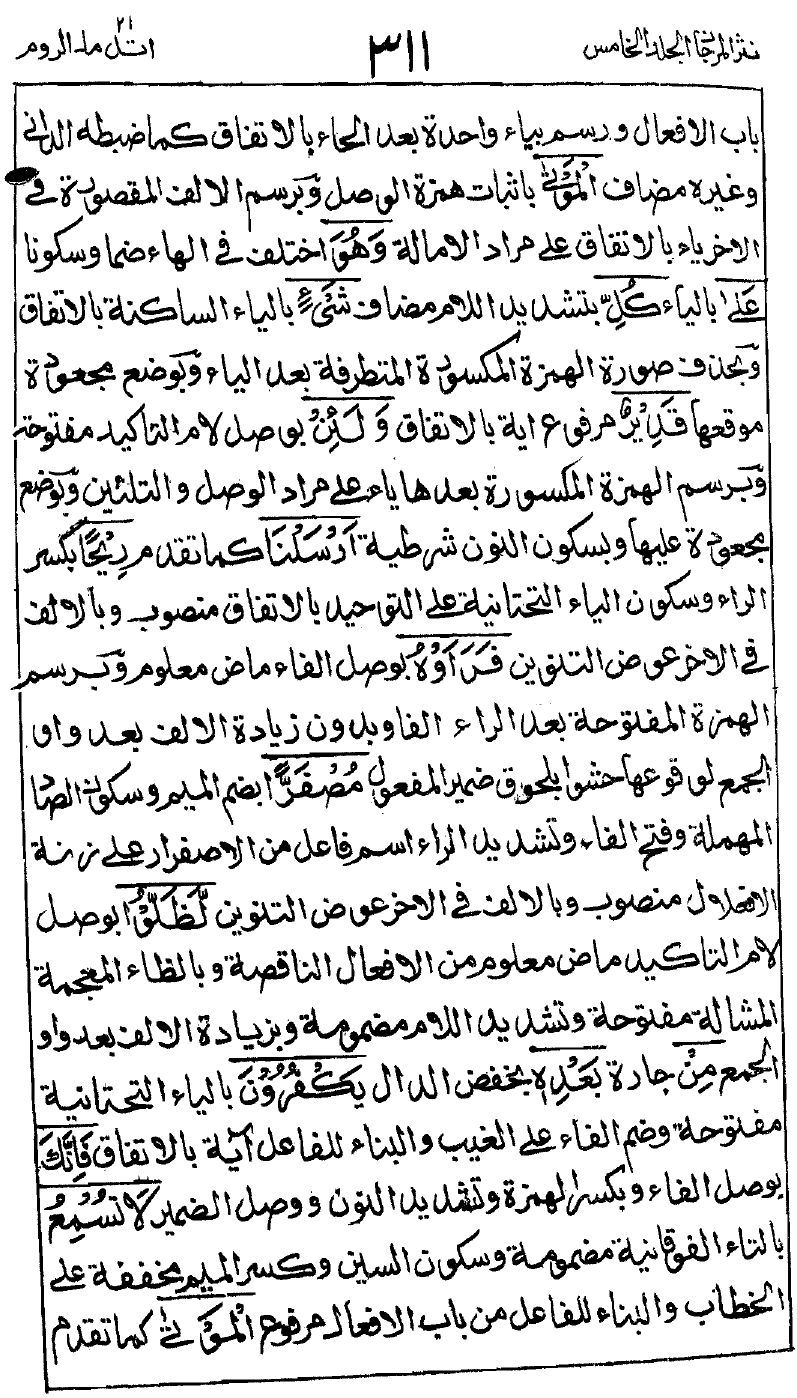 نثر المرجان المجلد الخامس
٣١١
٢١
اتل ما۔ الروم
باب الافعال ورسم بياء واحدة بعد الحاء بالاتفاق كما ضبطه الدانى
وغيره مضاف الْمَوْتٰى باثبات همزة الوصل وَبرسم الالف المقصورة فى
الاخرياء بالاتفاق على مراد الامالة وَهُوَ اختلف فى الهاء ضما وسكونا
عَلٰى بالياء كُلِّ بتشديد اللام مضاف شَىْءٍ بالياء الساكنة بالاتفاق
وَبحذف صورة الهمزة المكسورة المتطرفة بعد الياء وَبوضع مجعودة
موقعها قَدِيْرٌ مرفوع اية بالاتفاق وَلَئِنْ بوصل لام التاكيد مفتوحة
وَبرسم الهمزة المكسورة بعدها ياء على مراد الوصل والتلئين وَبوضع
مجعودة عليها وبسكون النون شرطية اَرْسَلْنَا كما تقدم رِيْحًا بكسر
الراء وسكون الياء التحتانية على التوحيد بالاتفاق منصوب وبالالف
فى الاخر عوض التنوين فَرَاَوْهُ بوصل الفاء ماض معلوم وَبرسم
الهمزة المفتوحة بعد الراء الفا وبدون زيادة الالف بعد واو
الجمع لوقوعها حشوا بلحوق ضمير المفعول مُصْفَرًّا بضم الميم وسكون الصاد
المهملة وفتح الفاء وتشديد الراء اسم فاعل من الاصفرار على زنة
الافعلال منصوب وبالالف فى الاخر عوض التنوين لَّظَلُّوْا بوصل
لام التاكيد ماض معلوم من الافعال الناقصة وبالظاء المعجمة
المشالة مفتوحة وتشديد اللام مضمومة وبزيادة الالف بعد واو
الجمع مِنْ جارة بَعْدِهٖ بخفض الدال يَكْفُرُوْنَ بالياء التحتانية
مفتوحة وضم الفاء على الغيب والبناء للفاعل آية بالاتفاق فَاِنَّكَ
بوصل الفاء وبكسر الهمزة وتشديد النون ووصل الضمير لَا تُسْمِعُ
بالتاء الفوقانية مضمومة وسكون السين وكسر الميم مخففة على
الخطاب والبناء للفاعل من باب الافعال مرفوع الْمَوْتٰى كما تقدم